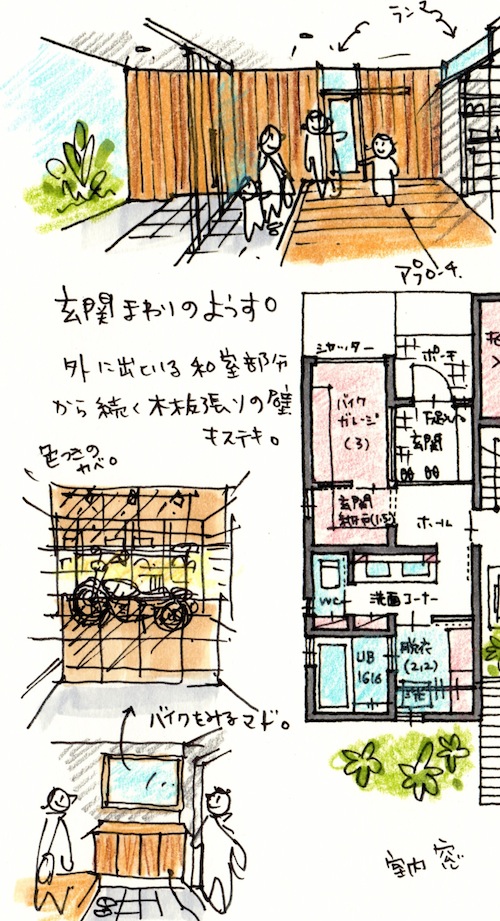 ランマ
アプローチ
玄関まわりのようす。
外に出ている和室部分
から続く木板張りの壁
もステキ。
色つきの
カベ。
シャッター
ポーチ
バイク
ガレージ
(3)
下足入
玄関
玄関
収納(1.5)
ホール
WC
洗面コーナー
UB
1616
脱衣
(2.2)
バイクをみるマド。
室内 窓